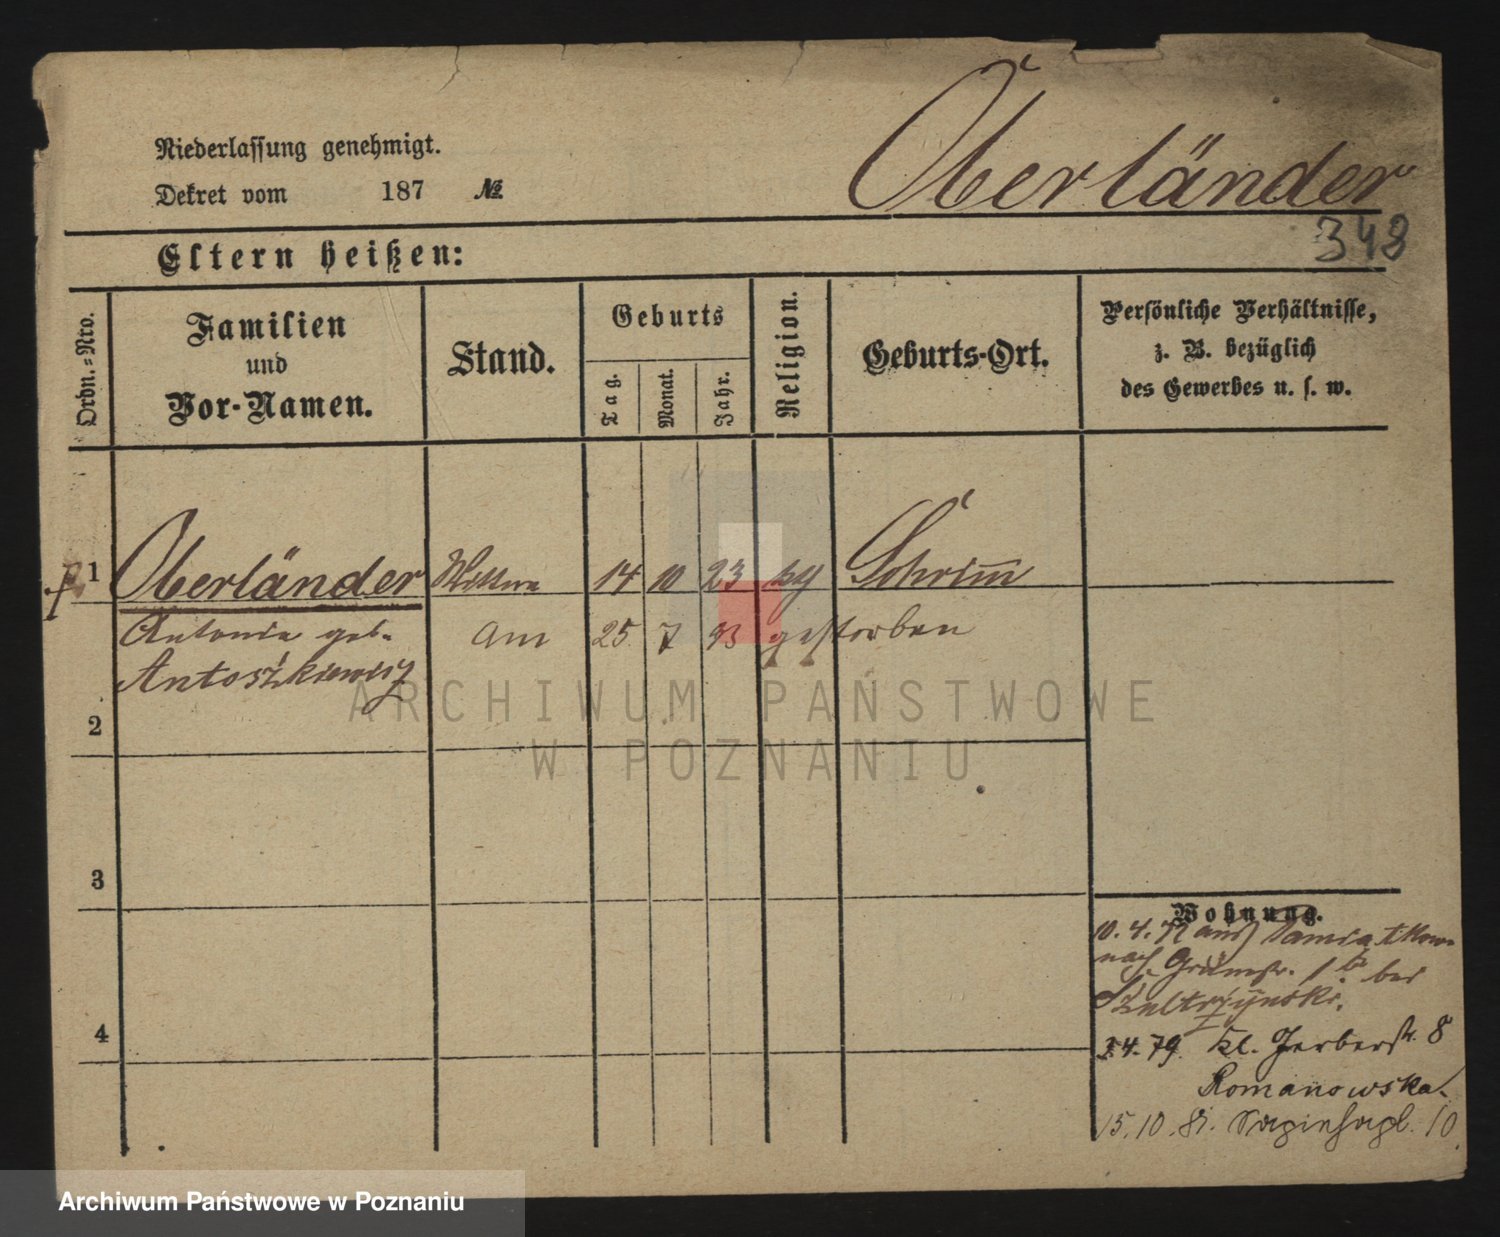 Niederlassung genehmigt.
Dekret vom 187 №
Oberländer
348
Eltern heißen:
Ordn.-Nro.
Familien
und
Vor-Namen.
Stand.
Geburts
Tag.
Monat.
Jahr.
Religion.
Geburts-Ort.
Persönliche Verhältnisse,
z. B. bezüglich
des Gewerbes u. s. w.
1 Oberländer Wittwe 14 10 23 kg Schrimm
Antonie geb. am 25 7 93 gestorben
Antoszkiewicz
2
3
4
Wohnung.
10. 4.
nach Grünstr. 1 b bei
4. 79. Kl. Gerberstr. 8
Romanowska.
15. 10. 10
ARCHIWUM PAŃSTWOWE
W POZNANIU
Archiwum Państwowe w Poznaniu